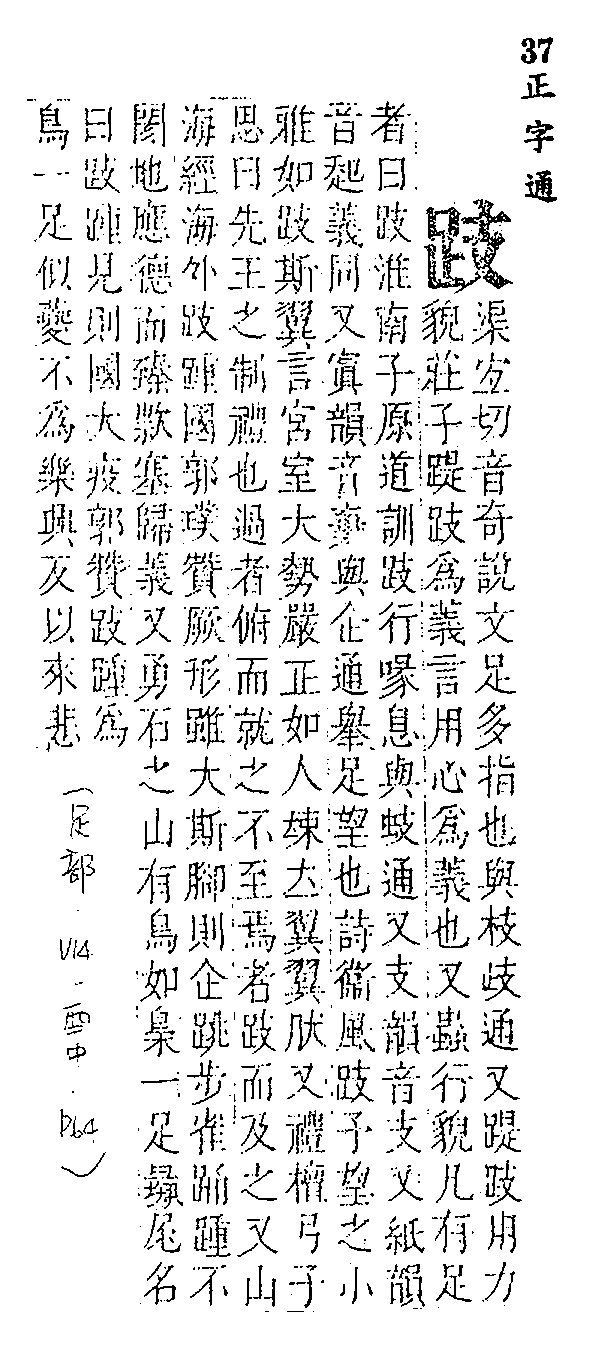 37
正字通
跂
渠宜切音奇說文足多指也與枝歧通又踶跂用力
貌莊子踶跂爲義言用心爲義也又蟲行貌凡有足
者曰跂淮南子原道訓跂行喙息與蚑通又支韻音支又紙韻
音起義同又寘韻音藝與企通舉足望也詩衞風跂予望之小
雅如跂斯翼言宮室大勢嚴正如人竦立翼翼肰又禮檀弓子
思曰先王之制禮也過者俯而就之不至焉者跂而及之又山
海經海外跂踵國郭璞贊厥形雖大斯腳則企跳步雀踊踵不
閡地應德而臻款塞歸義又勇石之山有鳥如梟一足彘尾名
曰跂踵見則國大疫郭贊跂踵爲
鳥一足似夔不爲樂興反以來悲
(足部.V14.酉中.P64)